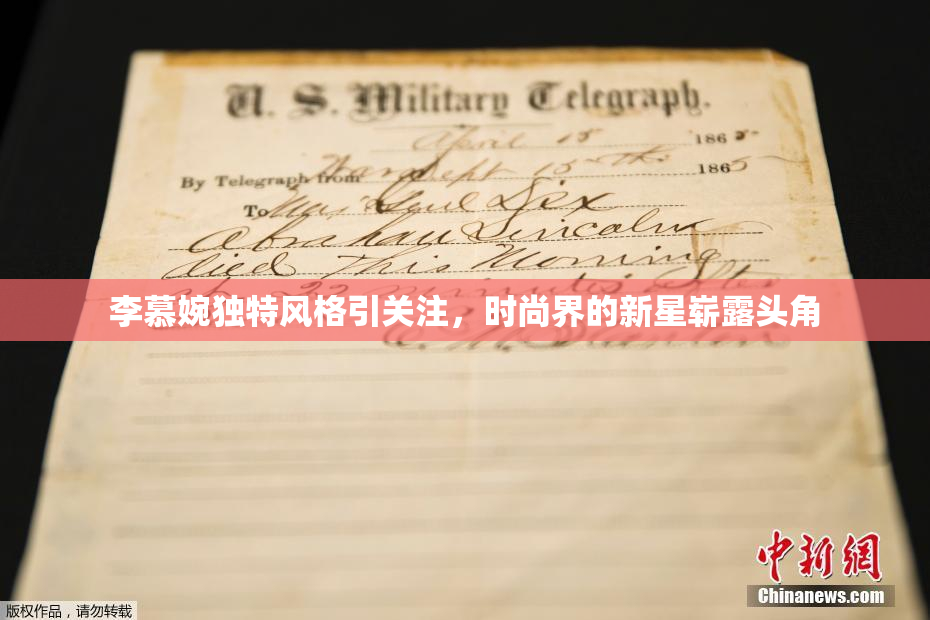 U. S. Military Telegraph.
April 15 1865.
By Telegraph from War Dept 15th 1865
To Maj Genl Dix
Abraham Lincoln
died This Morning
at 22 minutes after
李慕婉独特风格引关注，时尚界的新星崭露头角
E. M. Stanton
中新网
Chinanews.com
版权作品，请勿转载